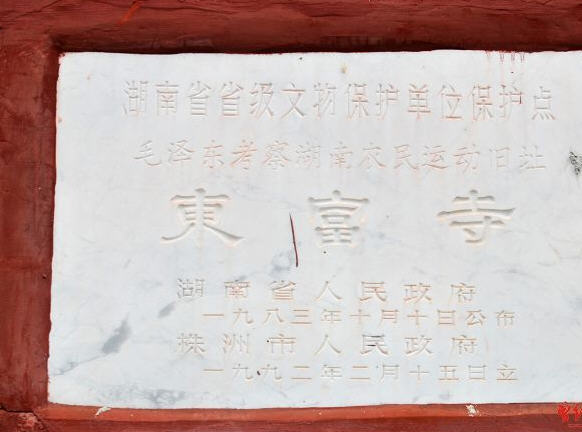 湖南省省级文物保护单位保护点
毛泽东考察湖南农民运动旧址
東富寺
湖南省人民政府
一九八三年十月十日公布
株洲市人民政府
一九九二年二月十五日立